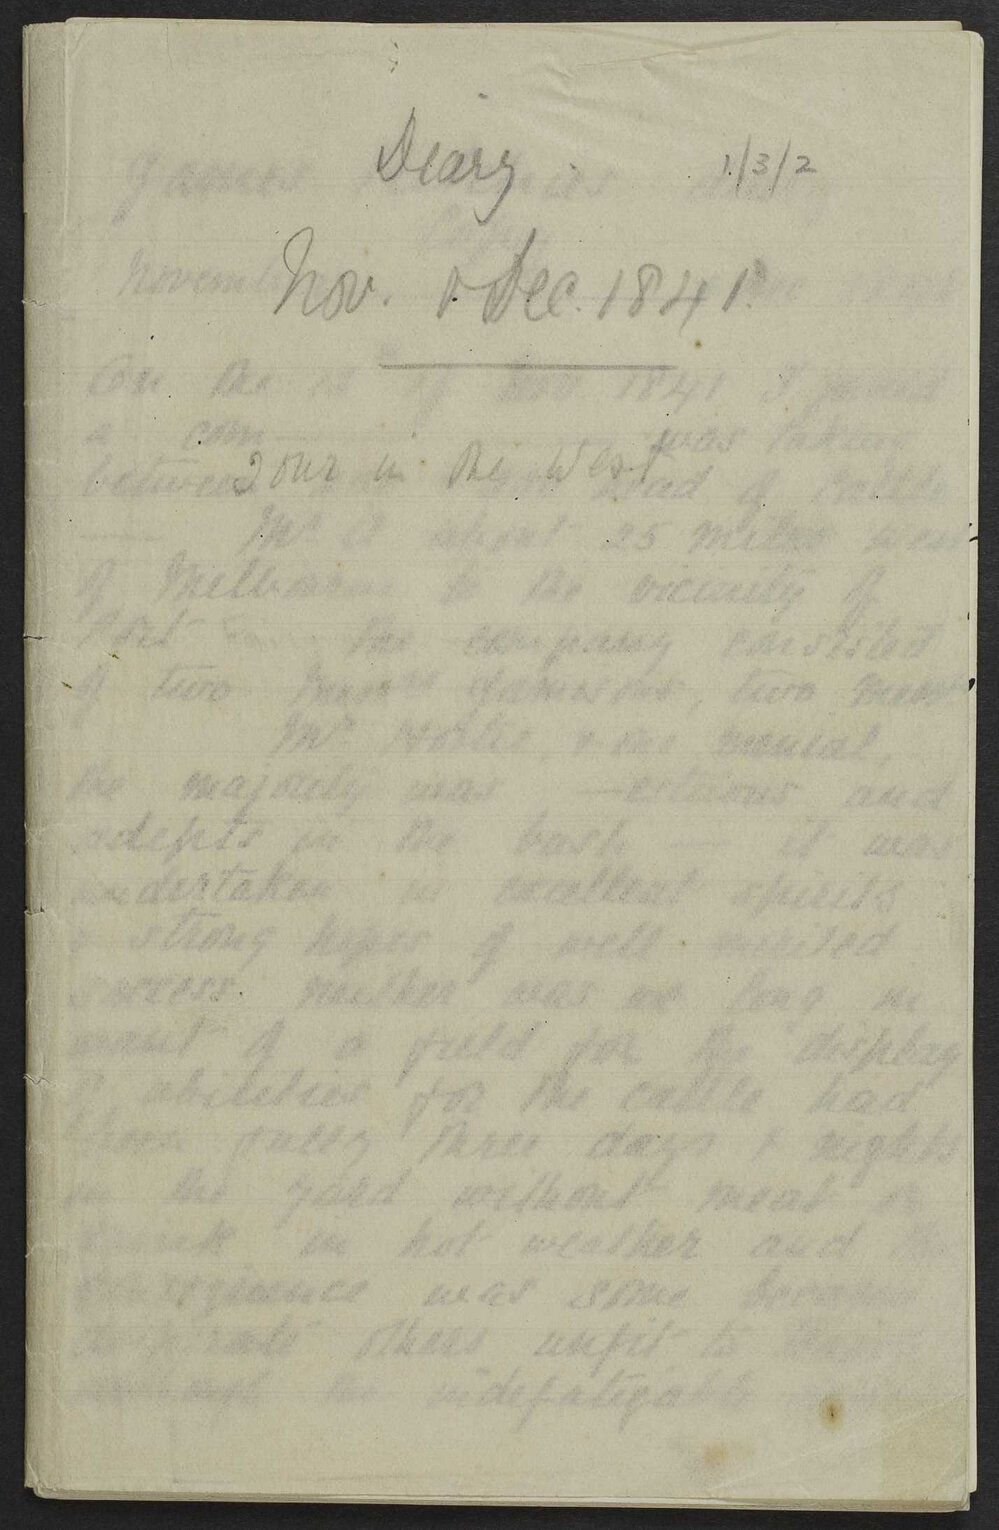 Diary
1/3/2
Nov. & Dec. 1841.
Tour in the West
James diary
Copy
November
On the 12th of Nov 1841 I joined
a com—— was taken
between head of cattle
—— Mr A about 25 miles west
of Melbourne to the vicinity of
Port the company consisted
of two Messrs Jamesons, two Messrs
Mr & one menial,
the majority was and
adepts in the bush — it was
undertaken in excellent spirits
& strong hopes of well merited
success. neither was we long in
want of a field for the display
of abilities for the cattle had
been fully three days & nights
in the yard without meat or
drink in hot weather and the
consequence was some became
others unfit to
the indefatigable